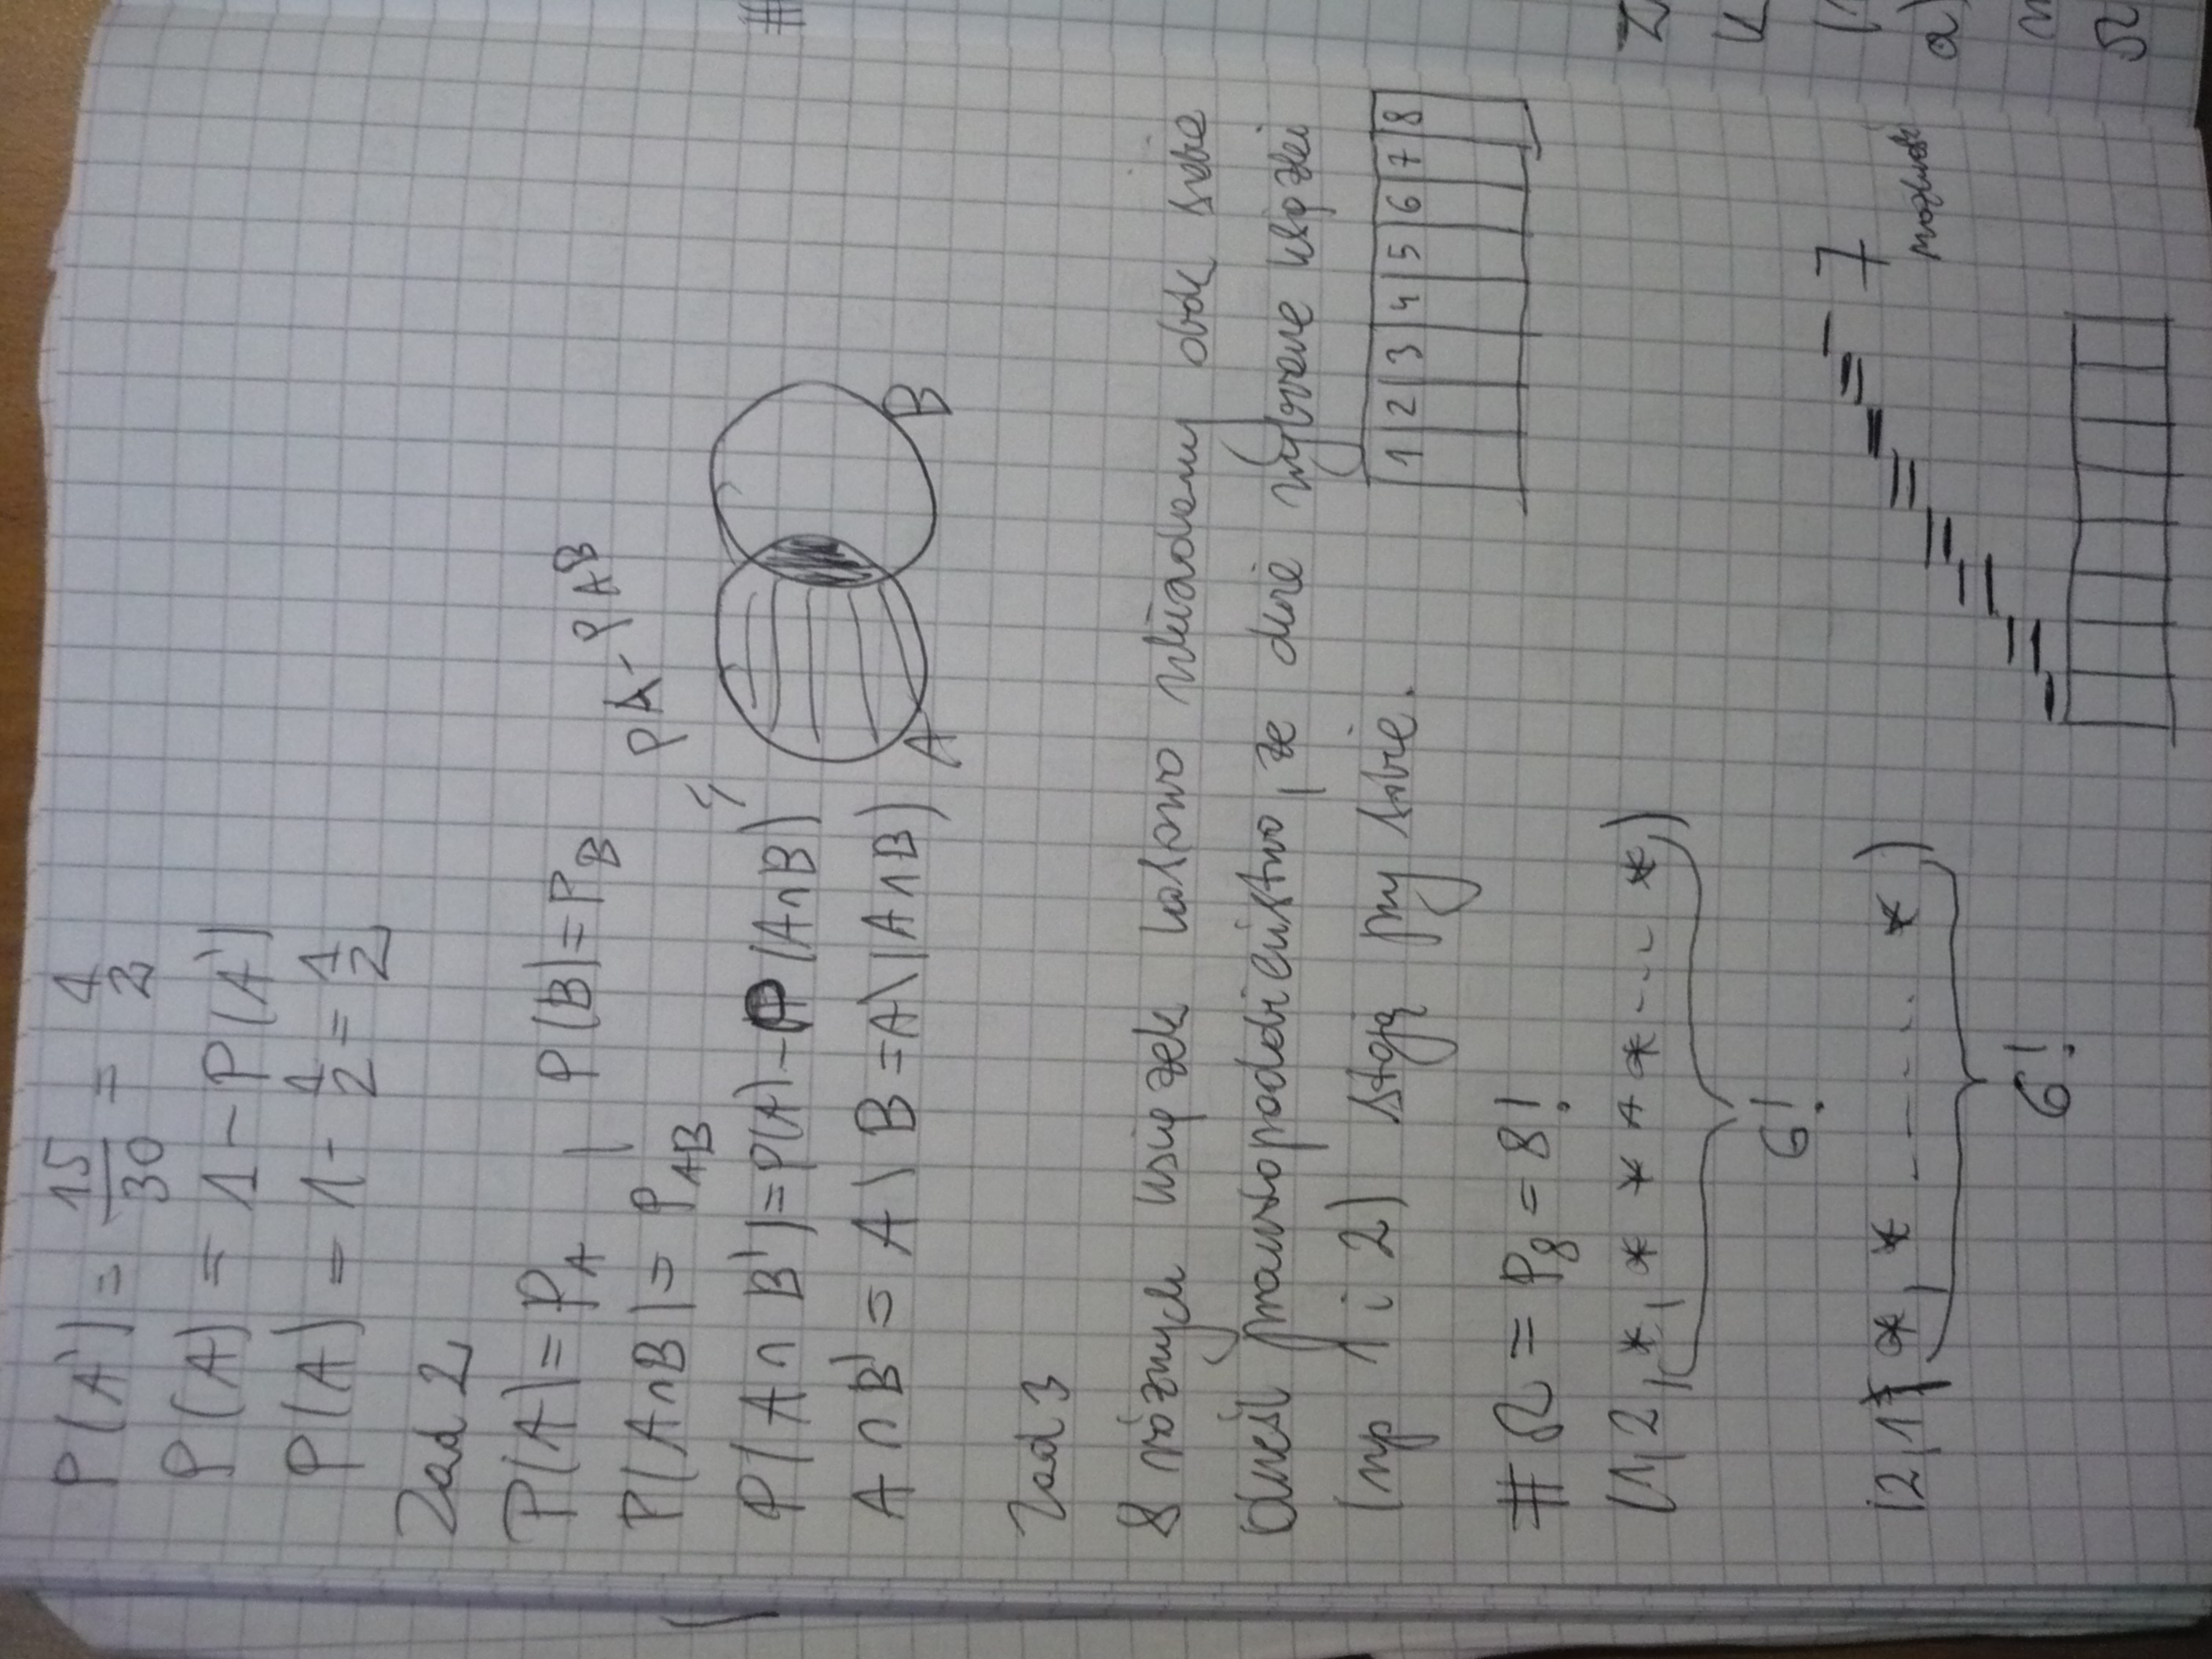 P(A') = 15/30 = 1/2
P(A) = 1 - P(A')
P(A) = 1 - 1/2 = 1/2
Zad 2
P(A) = P_A , P(B) = P_B
P(A∩B) = P_AB
PA - PAB
P(A∩B') = P(A) - P(A∩B)
A∩B' = A\B = A\(A∩B)
A B
Zad 3
8 różnych książek losowo układamy obok siebie
Określ prawdopodobieństwo, że dwie wybrane książki
(np 1 i 2) stoją przy sobie.
1 2 3 4 5 6 7 8
#Ω = P8 = 8!
(1, 2, *, * * * * * ... *)
6!
7
możliwości
(2, 1, *, * ..... *)
6!
#
Z
K
a)
Ω